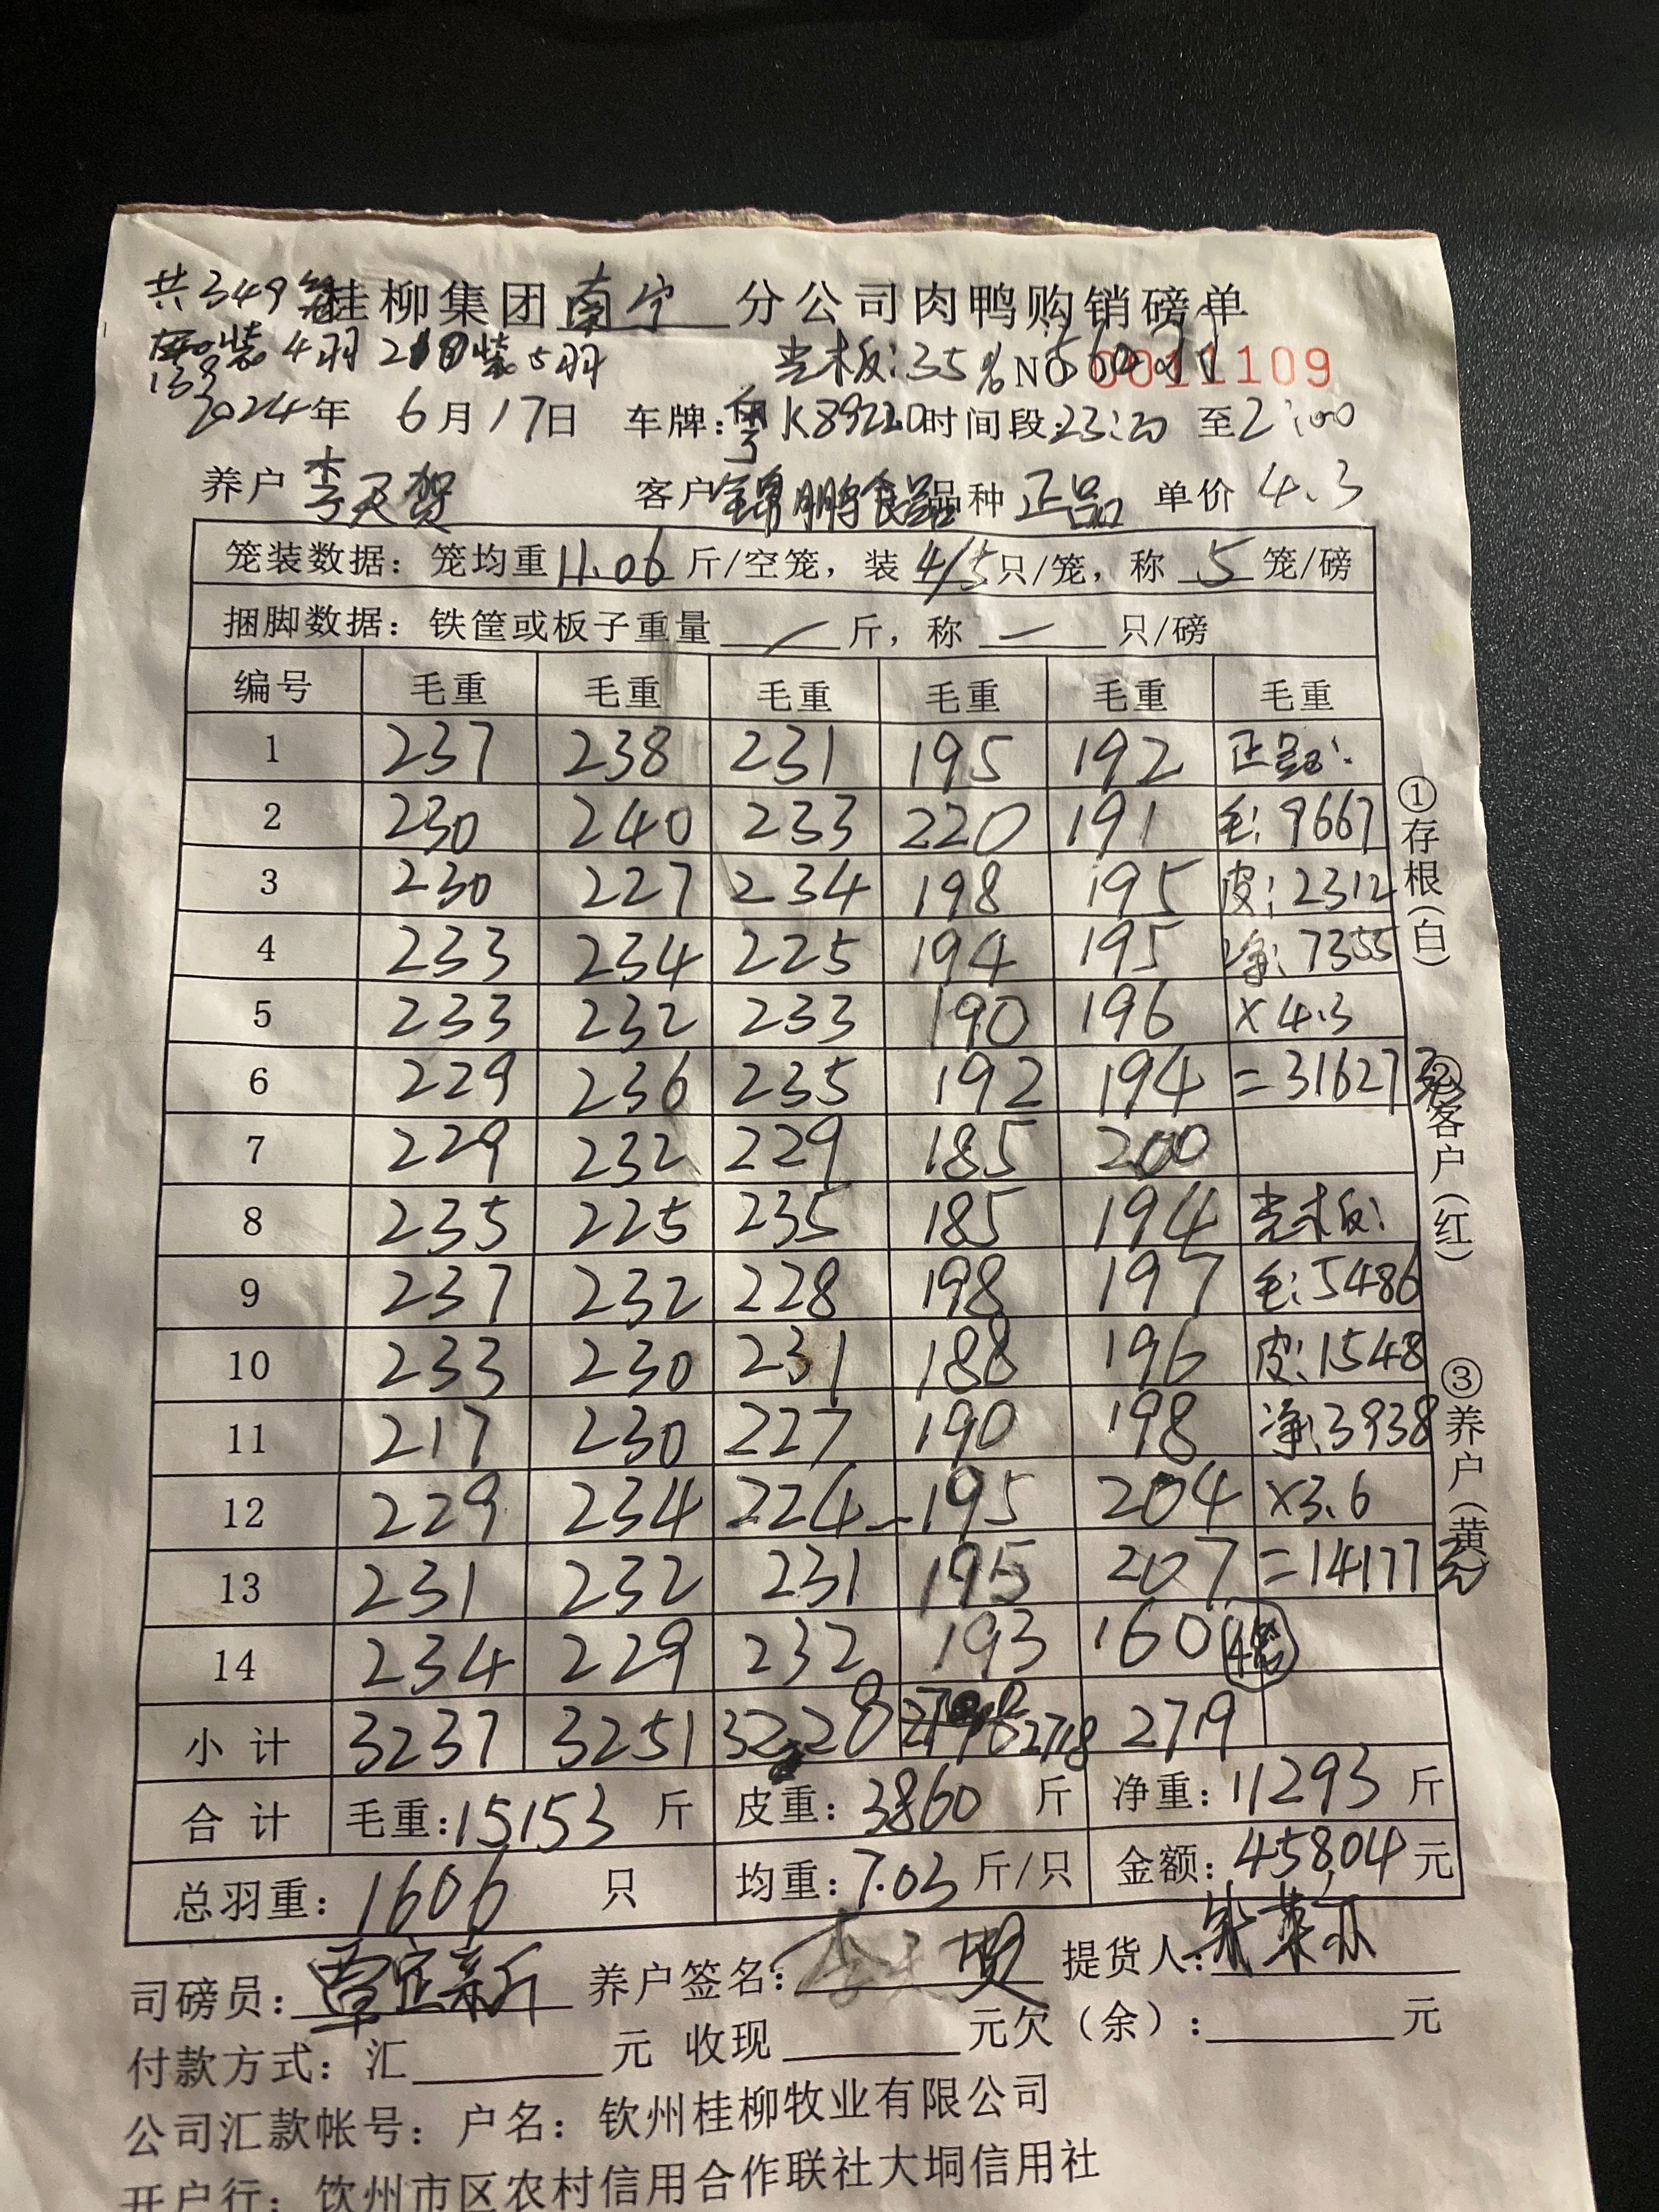 共349笼 桂柳集团南宁分公司肉鸭购销磅单
139装4羽 210装5羽 光木板:35% 560羽 NO 0011109
2024年 6月17日 车牌:粤K89220 时间段:23:20 至2:00
养户 李天贺 客户 锦鹏食品 品种 正品 单价 4.3
笼装数据: 笼均重11.06斤/空笼, 装4/5只/笼, 称 5 笼/磅
捆脚数据: 铁筐或板子重量 一 斤, 称 一 只/磅
编号 毛重 毛重 毛重 毛重 毛重 毛重
1 237 238 231 195 192 正品:
2 230 240 233 220 191 毛:9667
3 230 227 234 198 195 皮:2312
4 233 234 225 194 195 净:7355
5 233 232 233 190 196 ×4.3
6 229 236 235 192 194 =31627元
7 229 232 229 185 200
8 235 225 235 185 194 光木板:
9 237 232 228 198 197 毛:5486
10 233 230 231 188 196 皮:1548
11 217 230 227 190 198 净:3938
12 229 234 224 195 204 ×3.6
13 231 232 231 195 207 =14177元
14 234 229 232 193 160 4笼
小计 3237 3251 3228 2718 2719
合计 毛重:15153 斤 皮重:3860 斤 净重:11293 斤
总羽重:1606 只 均重:7.03 斤/只 金额:45804元
司磅员:覃定新 养户签名:李天贺 提货人:
付款方式: 汇 元 收现 元欠(余): 元
公司汇款帐号: 户名: 钦州桂柳牧业有限公司
开户行: 钦州市区农村信用合作联社大垌信用社
①存根(白)
②客户(红)
③养户(黄)